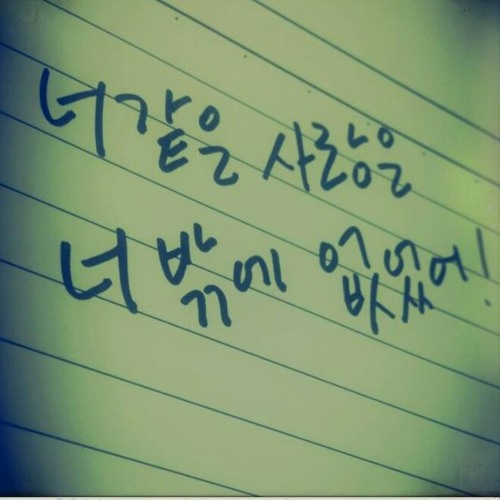 너같은 사랑은
너밖에 없었어!